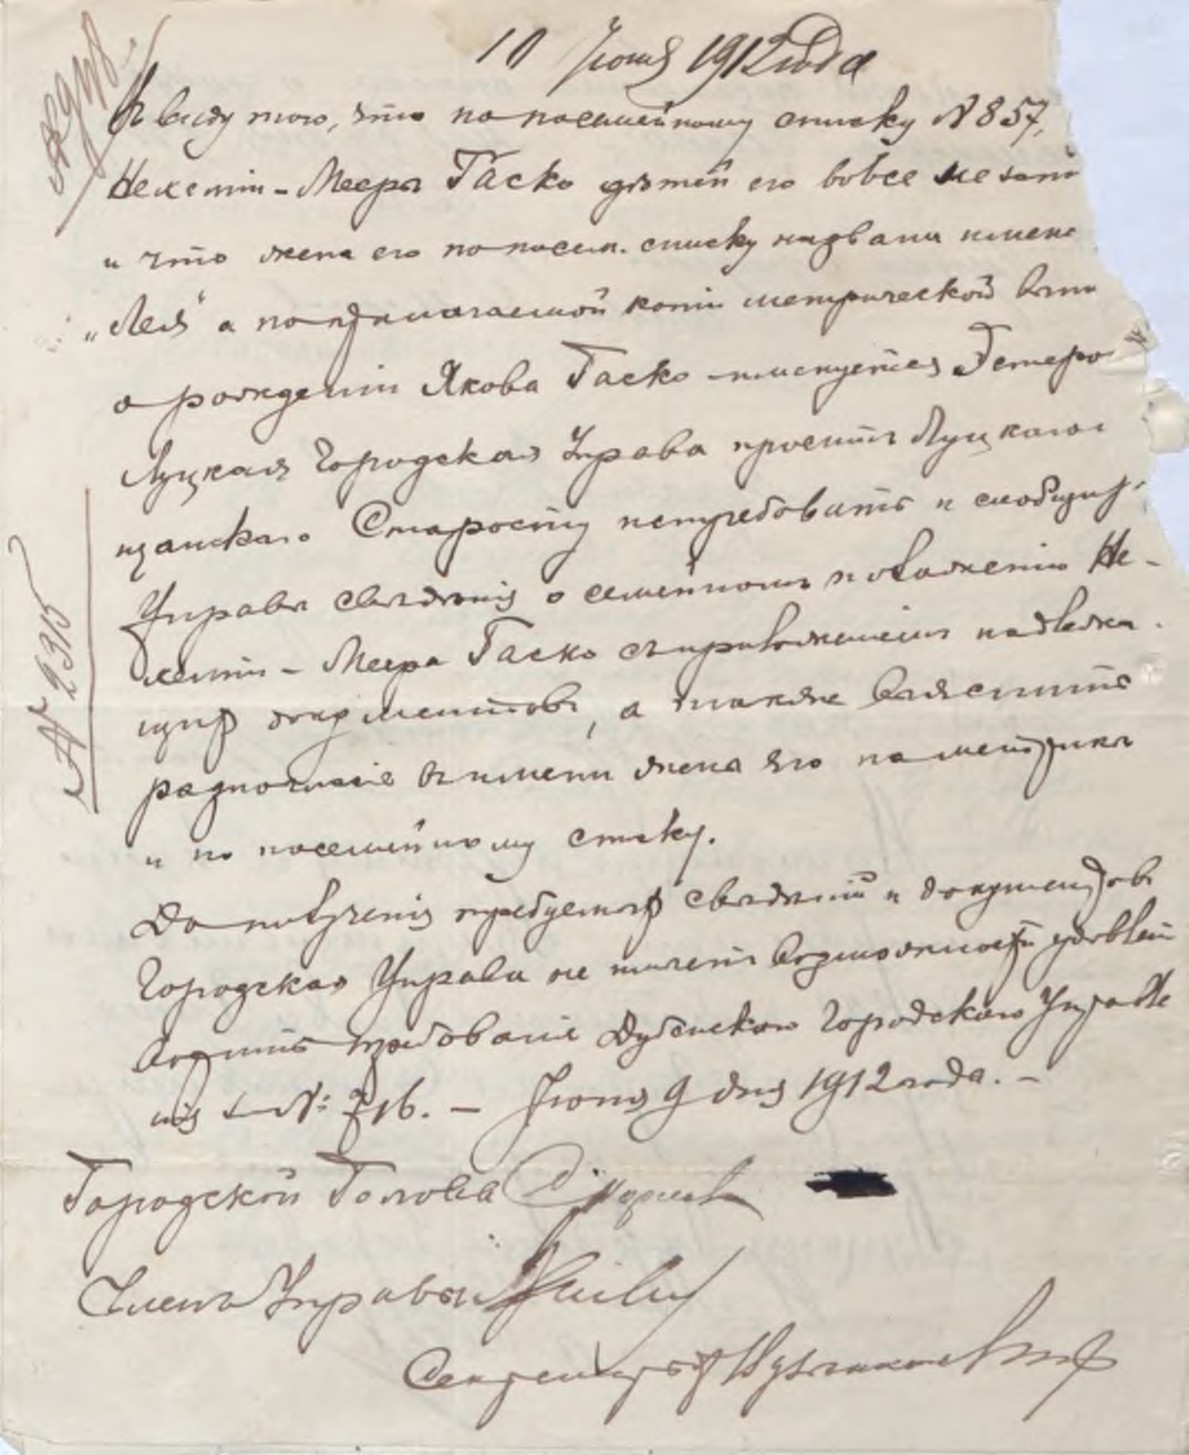 10 Іюня 1912 года
Въ виду того, что по посемейному списку № 857,
Нехеміи-Меера Гаско дѣтей его вовсе не
и что жена его по посем. списку названа имене
„Лея" а по прилагаемой копіи метрической
о рожденіи Якова Гаско именуется Эстеро
Луцкая Городская Управа проситъ Луцкаго
щанскаго Старосту истребовать и сообщить
Управѣ свѣдѣнія о семейномъ положеніи Не-
хеміи-Меера Гаско съ приложеніемъ надлежа-
щихъ документовъ, а также выяснить
разногласіе въ имени жены его по метрикѣ
и по посемейному списку.
До полученія требуемыхъ свѣдѣній и документовъ
Городская Управа не имѣетъ возможности удовлет
ворить требованіе Дубенскаго Городского Управле
нія за №: 716. — Іюня 9 дня 1912 года. —
Городской Голова
Членъ Управы
Секретарь
№ 2315